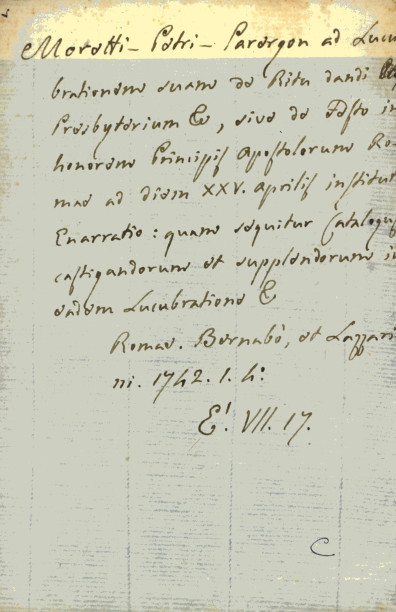 Moretti - Petri - Parergon ad Lucu
brationem suam de Ritu dandi
Presbyterium &, sive de Festo in
honorem Principis Apostolorum Ro-
mae ad diem XXV. Aprilis institut
Enarratio: quam sequitur Catalogus
castigandorum et supplendorum in
eadem Lucubratione &
Romae. Bernabò, et Lazzari
ni. 1742. 1. 4:
E! VII. 17.
C